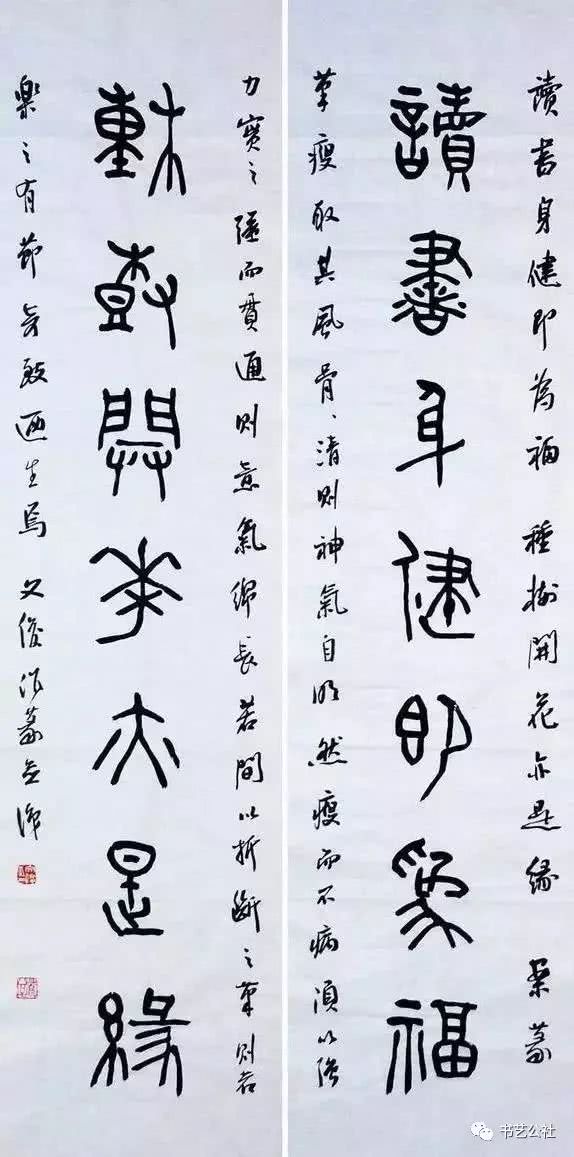 讀書身健即為福 種樹開花亦是緣 柔篆
讀書身健即為福
筆瘦取其風骨、清則神氣自明 然瘦而不病須以強
力實之 強而貫通則意氣綿長 若間以折斷之筆則若
種樹開花亦是緣
樂之有節 奇致迺生焉 文俊作篆並識
书艺公社